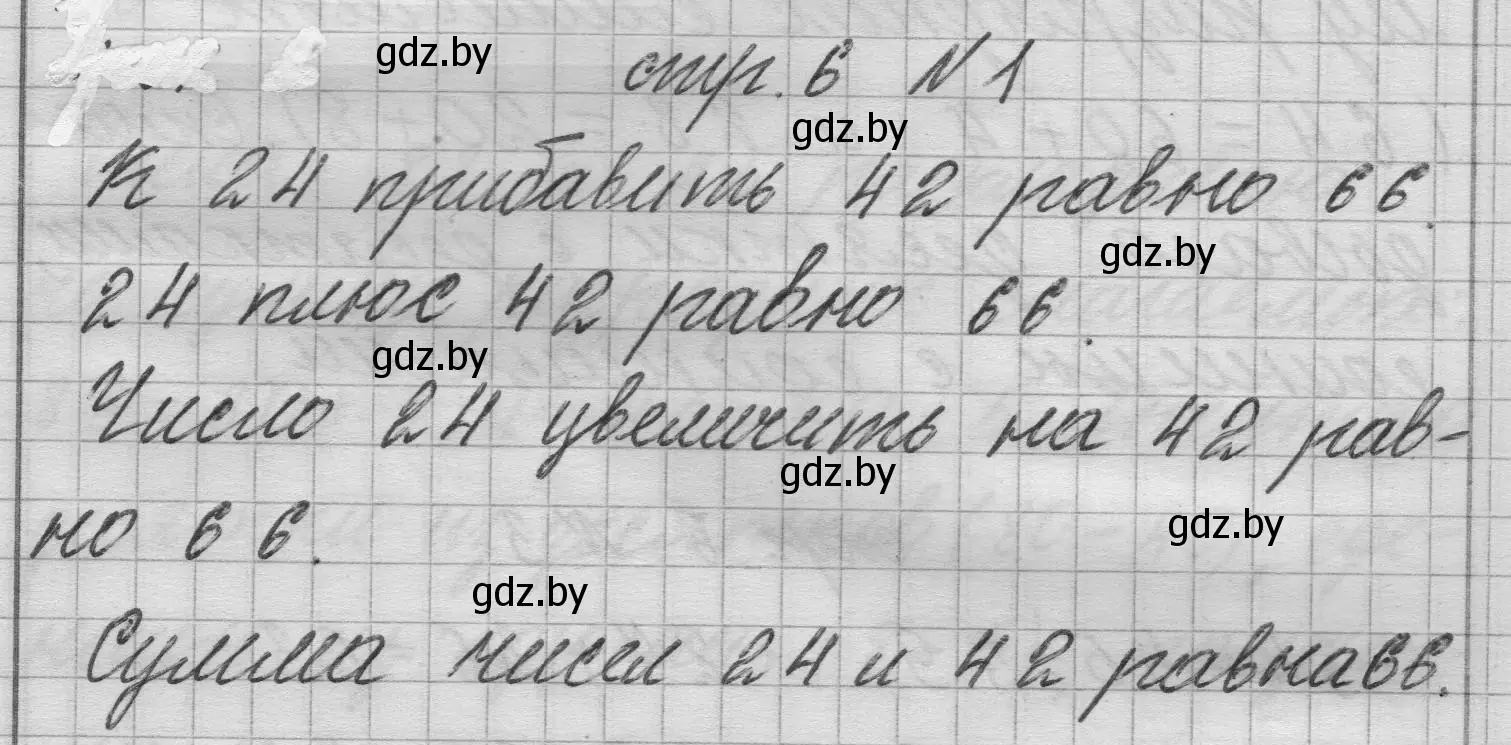 gdz.by
стр. 6 N 1
gdz.by
К 24 прибавить 42 равно 66.
gdz.by
24 плюс 42 равно 66.
gdz.by
Число 24 увеличить на 42 рав-
gdz.by
gdz.by
но 66.
gdz.by
Сумма чисел 24 и 42 равна 66.